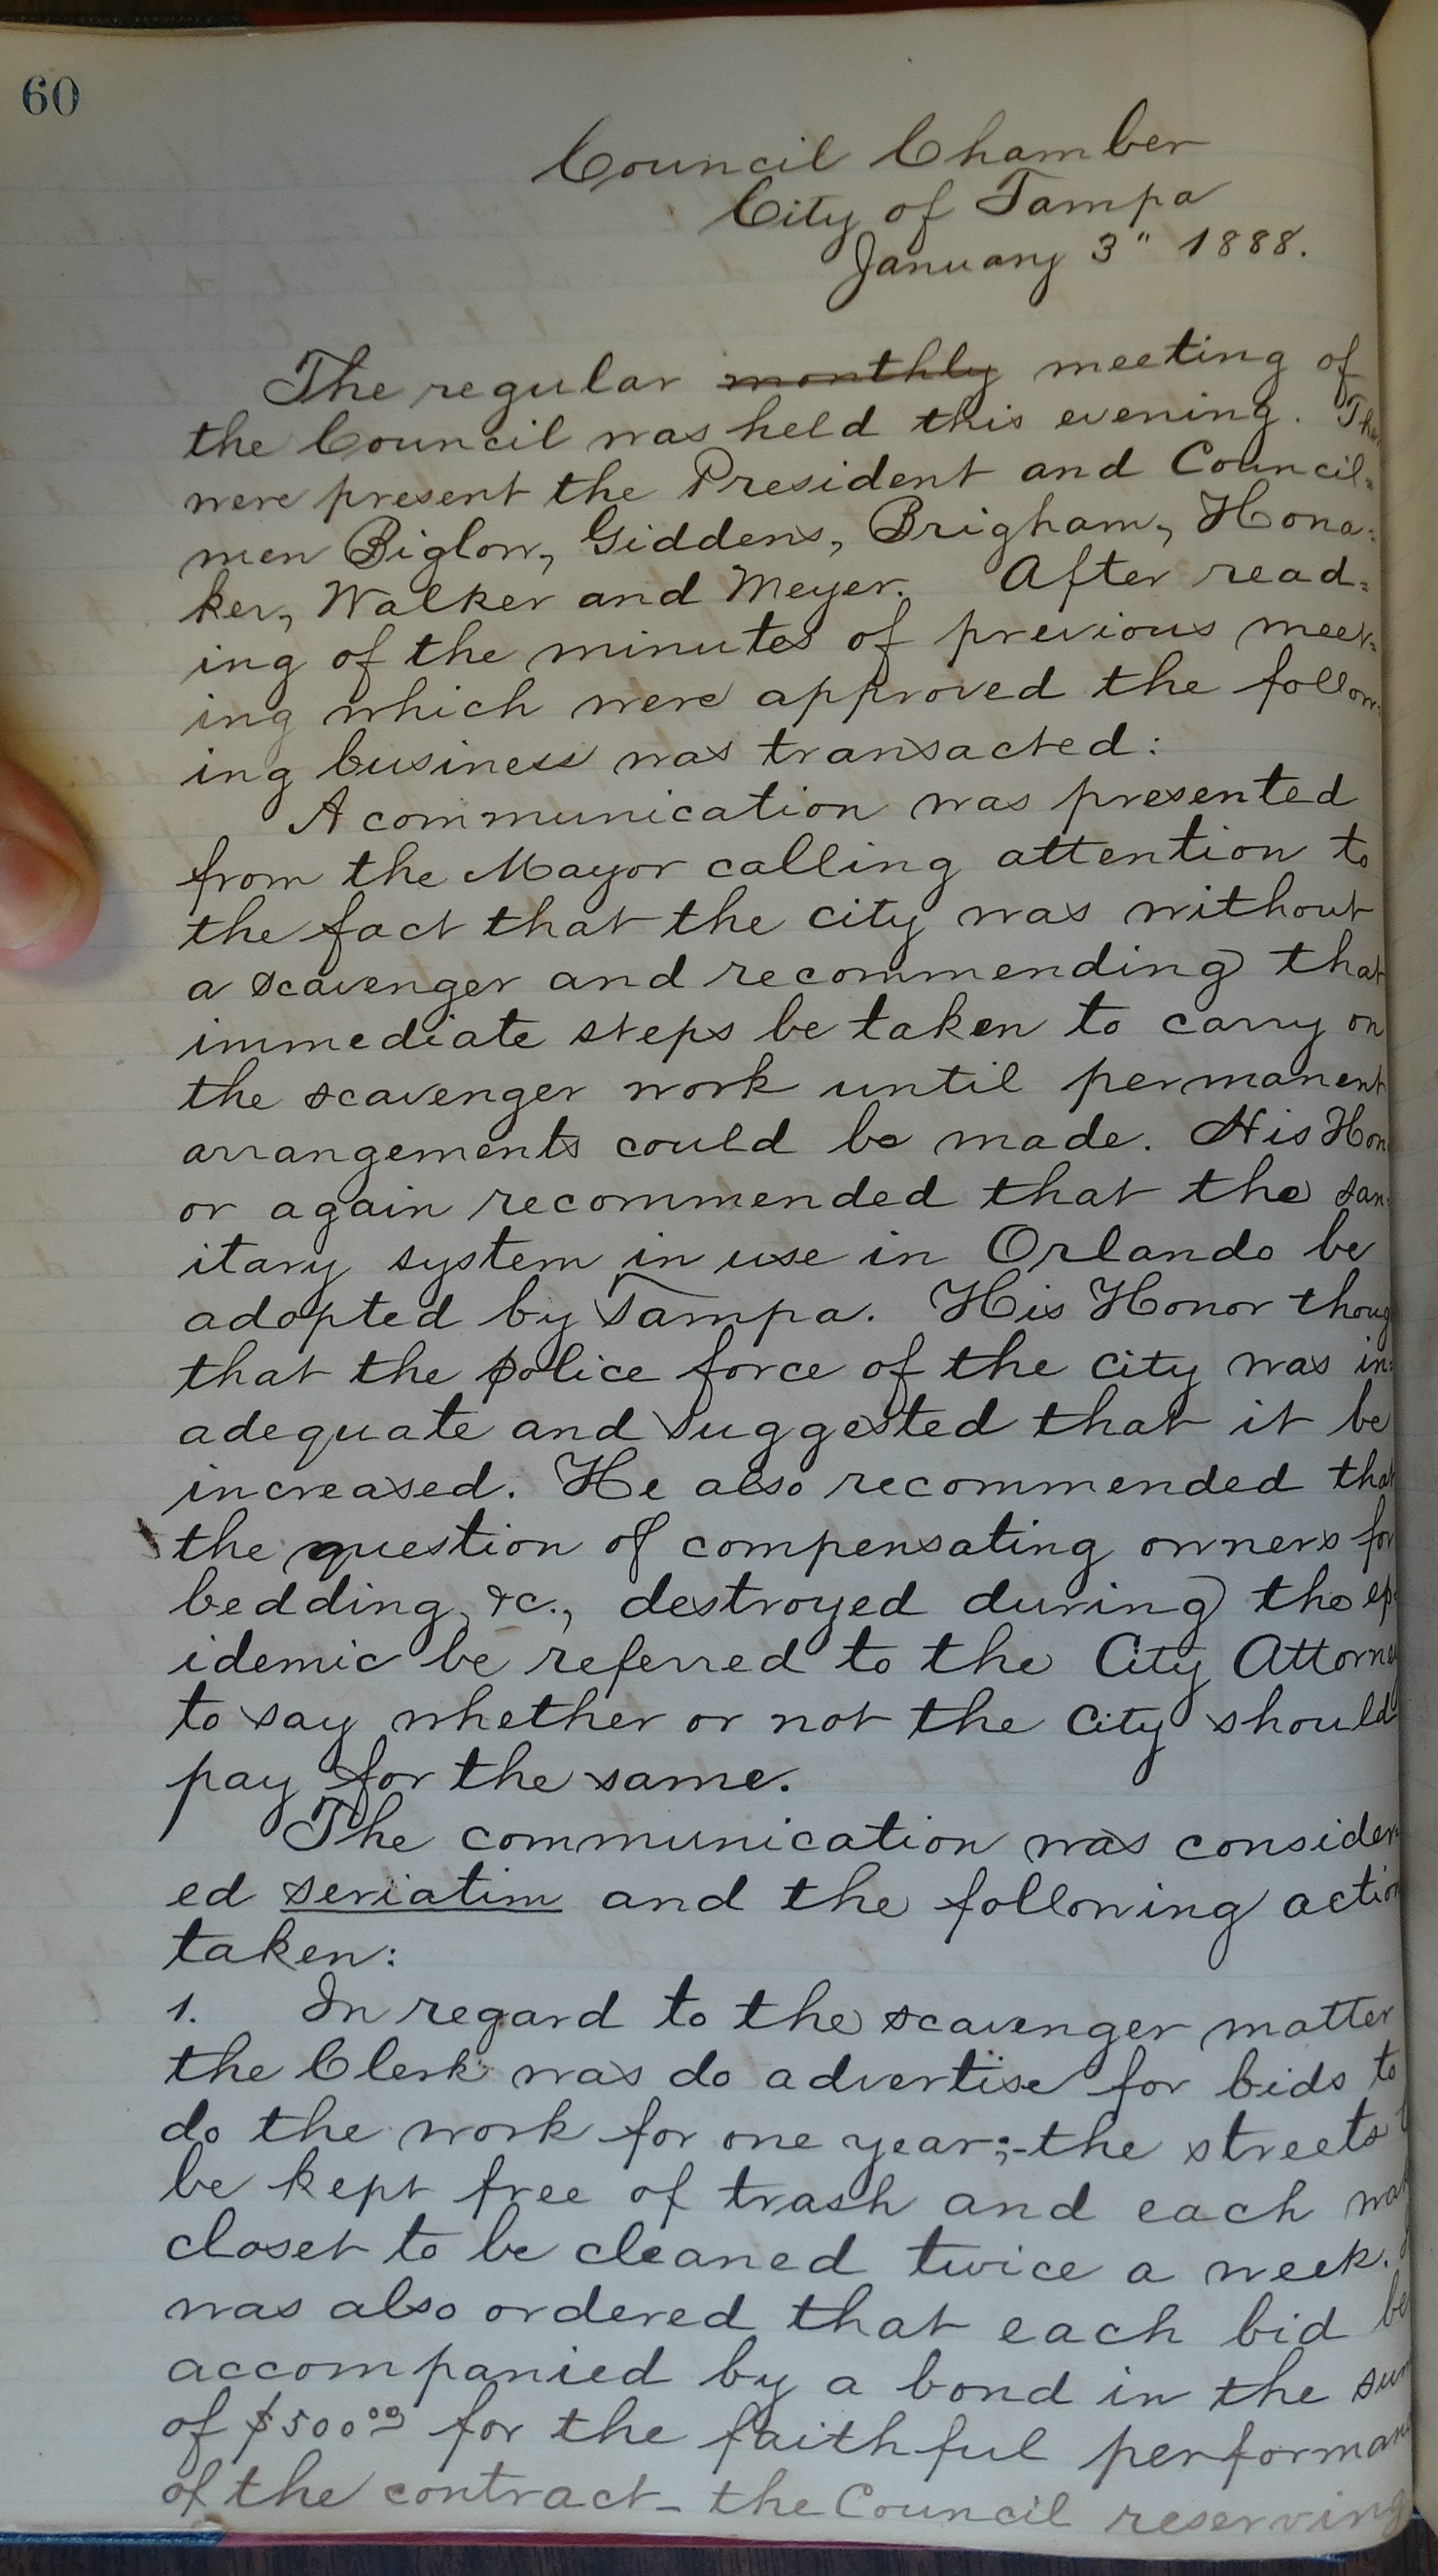 60
Council Chamber
City of Tampa
January 3" 1888.
The regular monthly meeting of
the Council was held this evening. The
were present the President and Council-
men Biglow, Giddens, Brigham, Hona-
ker, Walker and Meyer. After read-
ing of the minutes of previous meet-
ing which were approved the follow-
ing business was transacted:
A communication was presented
from the Mayor calling attention to
the fact that the city was without
a scavenger and recommending that
immediate steps be taken to carry on
the scavenger work until permanent
arrangements could be made. His Hon
or again recommended that the san-
itary system in use in Orlando be
adopted by Tampa. His Honor thoug
that the police force of the city was in-
adequate and suggested that it be
increased. He also recommended that
the question of compensating owners for
bedding, &c., destroyed during the ep-
idemic be referred to the City Attorney
to say whether or not the City should
pay for the same.
The communication was consider-
ed seriatim and the following action
taken:
1. In regard to the scavenger matter
the Clerk was do advertise for bids to
do the work for one year;-the streets
be kept free of trash and each
closet to be cleaned twice a week.
was also ordered that each bid be
accompanied by a bond in the sum
of $500.00 for the faithful performan
of the contract - the Council reserving